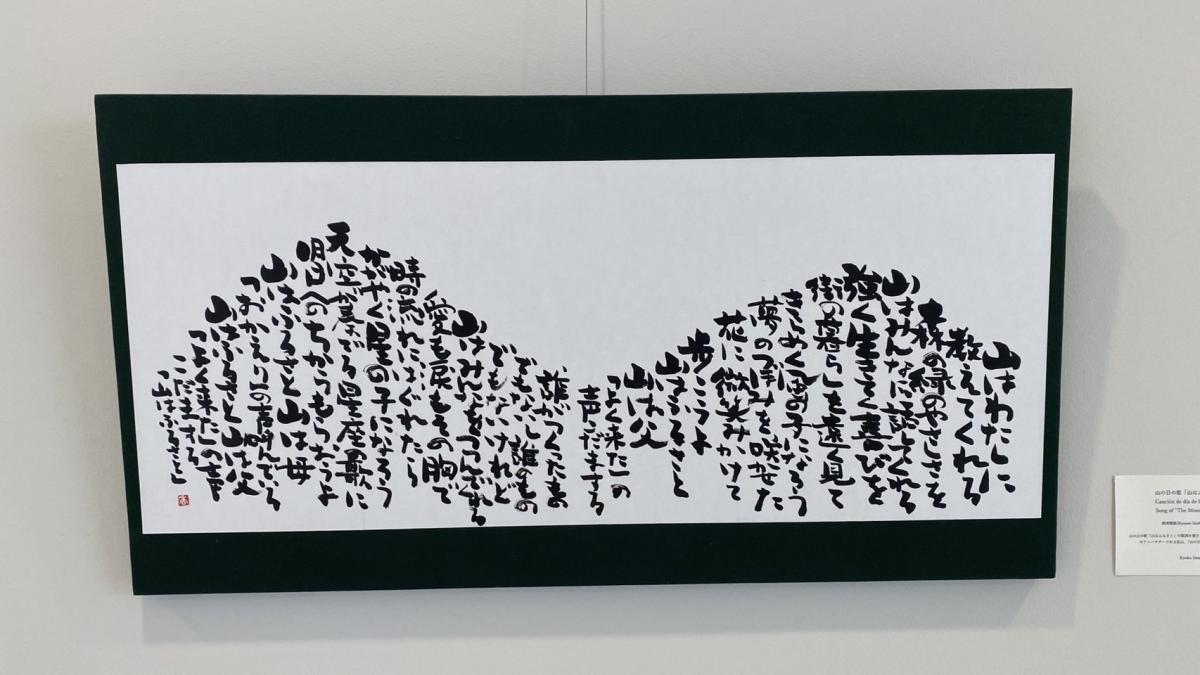 山はわたしに
教えてくれる
森の緑のやさしさを
山はみんなに話してくれる
強く生きてく喜びを
街の暮らしを遠く見て
きらめく風の子になろう
夢のつぼみを咲かせた
花に微笑みかけて
歩こうよ
山はふるさと
山は父
「よく来た」の
声こだまする
誰がつくったもの
でもないし誰のもの
でもないけれど
山はみんなをつつんでくれる
愛も涙もその胸で
時の流れにはぐれたら
かがやく星の子になろう
天空が奏でる星座の歌に
明日へのちからをもらおうよ
山はふるさと山は母
「おかえり」の声呼んでいる
山はふるさと山は父
「よく来た」の声
こだまする
「山はふるさと」
山の日の歌「山は
Canción de día de
Song of "The Moun